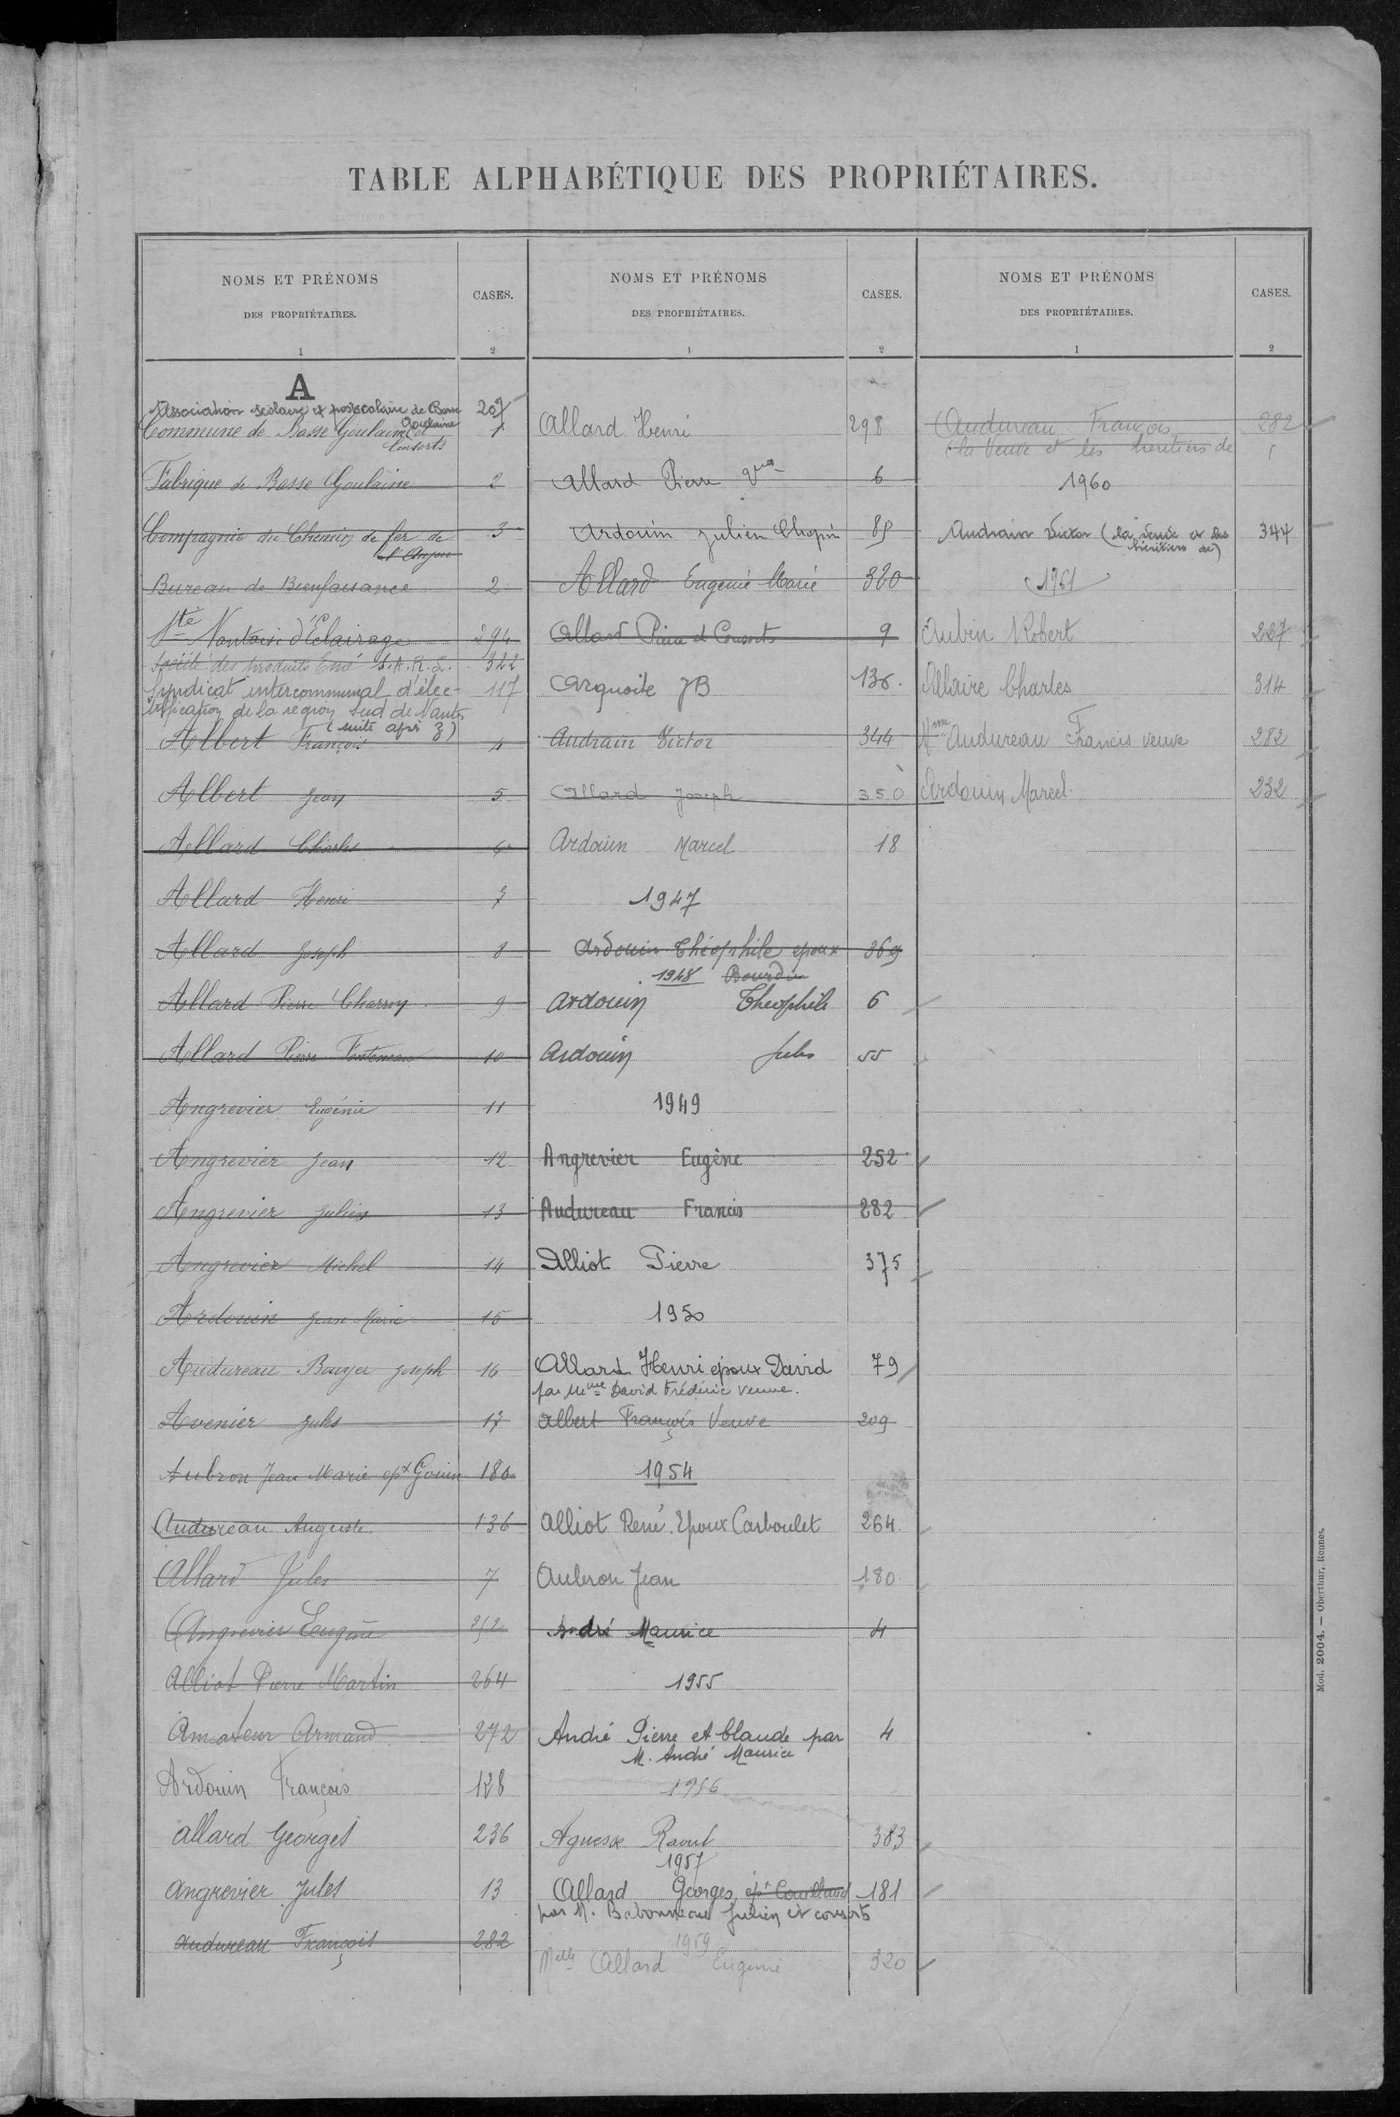 TABLE ALPHABÉTIQUE DES PROPRIÉTAIRES.
NOMS ET PRÉNOMS
DES PROPRIÉTAIRES.
CASES.
1
2
A
Association scolaire et postscolaire de Basse Goulaine 207
Commune de Basse Goulaine et Consorts 1
Fabrique de Basse Goulaine 2
Compagnie du Chemin de fer de 3
l'Anjou
Bureau de Bienfaisance 2
Sté Nantaise d'Eclairage 294
Société des produits S.A.R.L. 322
Syndicat intercommunal d'élec- 117
trification de la région Sud de Nantes
(suite après Z)
Albert François 4
Albert Jean 5
Allard Charles 6
Allard Henri 7
Allard Joseph 8
Allard Pierre Charron 9
Allard Pierre 10
Angrevier Eugénie 11
Angrevier Jean 12
Angrevier Julien 13
Angrevier Michel 14
Ardouin Jean Marie 15
Audureau Bouyer Joseph 16
Avenier Jules 17
Aubron Jean Marie épx Gouin 180
Audureau Auguste 136
Allard Jules 7
Angrevier Eugène 252
Alliot Pierre Martin 264
Amateur Armand 272
Ardouin François 128
Allard Georges 236
Angrevier Jules 13
Audureau François 282
NOMS ET PRÉNOMS
DES PROPRIÉTAIRES.
CASES.
1
2
Allard Henri 298
Allard Pierre Vve 6
Ardouin Julien Chopin 89
Allard Eugénie Marie 320
Allard Pierre et Consorts 9
Arquoite JB 136
Audrain Victor 344
Allard Joseph 350
Ardouin Marcel 18
1947
Ardouin Théophile époux 369
1948 Bourdin
Ardouin Théophile 6
Ardouin Jules 55
1949
Angrevier Eugène 252
Audureau Francis 282
Alliot Pierre 375
1950
Allard Henri époux David 79
par Mme David Frédéric veuve.
Albert François Veuve 209
1954
Alliot René Epoux Carboulet 264
Aubron Jean 180
André Maurice 4
1955
André Pierre et Claude par 4
M. André Maurice
1956
Agnesse Raoul 383
1957
Allard Georges épx Couillaud 181
par M. Babonneau Julien et consorts
1959
Melle Allard Eugenie 320
NOMS ET PRÉNOMS
DES PROPRIÉTAIRES.
CASES.
1
2
Audureau François 282
(la Veuve et les héritiers de
1960
Audrain Victor (la veuve et les 344
héritiers de)
1961
Aubin Robert 227
Allaire Charles 314
Mme Audureau Francis veuve 282
Ardouin Marcel 232
Mod. 2004. — Oberthur, Rennes.